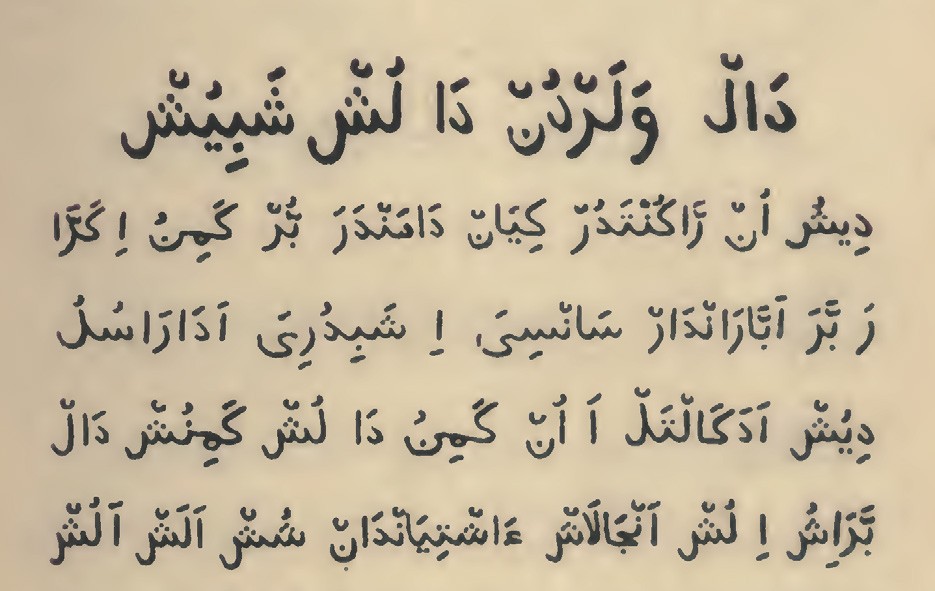 دَالْ وَلَرْدُنْ دَا لُشْ شَبِيُشْ
دِيشُ اُنْ رَّاكُنْتَدُرْ كِيَانْ دَامَنْدَرَ بُّرْ كَمِنُ اِ كَرَّا
رَ بَّرَ اَبَّارَانْدَارْ سَانْسِيَ اِ شَبِدُرِيَ اَدَارَاسُلُ
دِيُشْ اَدَكَالْتَلْ اَ اُنْ كَمِنُ دَا لُشْ كَمِنُشْ دَالْ
بَّرَاِشُ اِ لُشْ اَنْجَالَاشْ ءَاشْتِيَانْدَانْ شُشْ اَلَشْ اَلُشْ